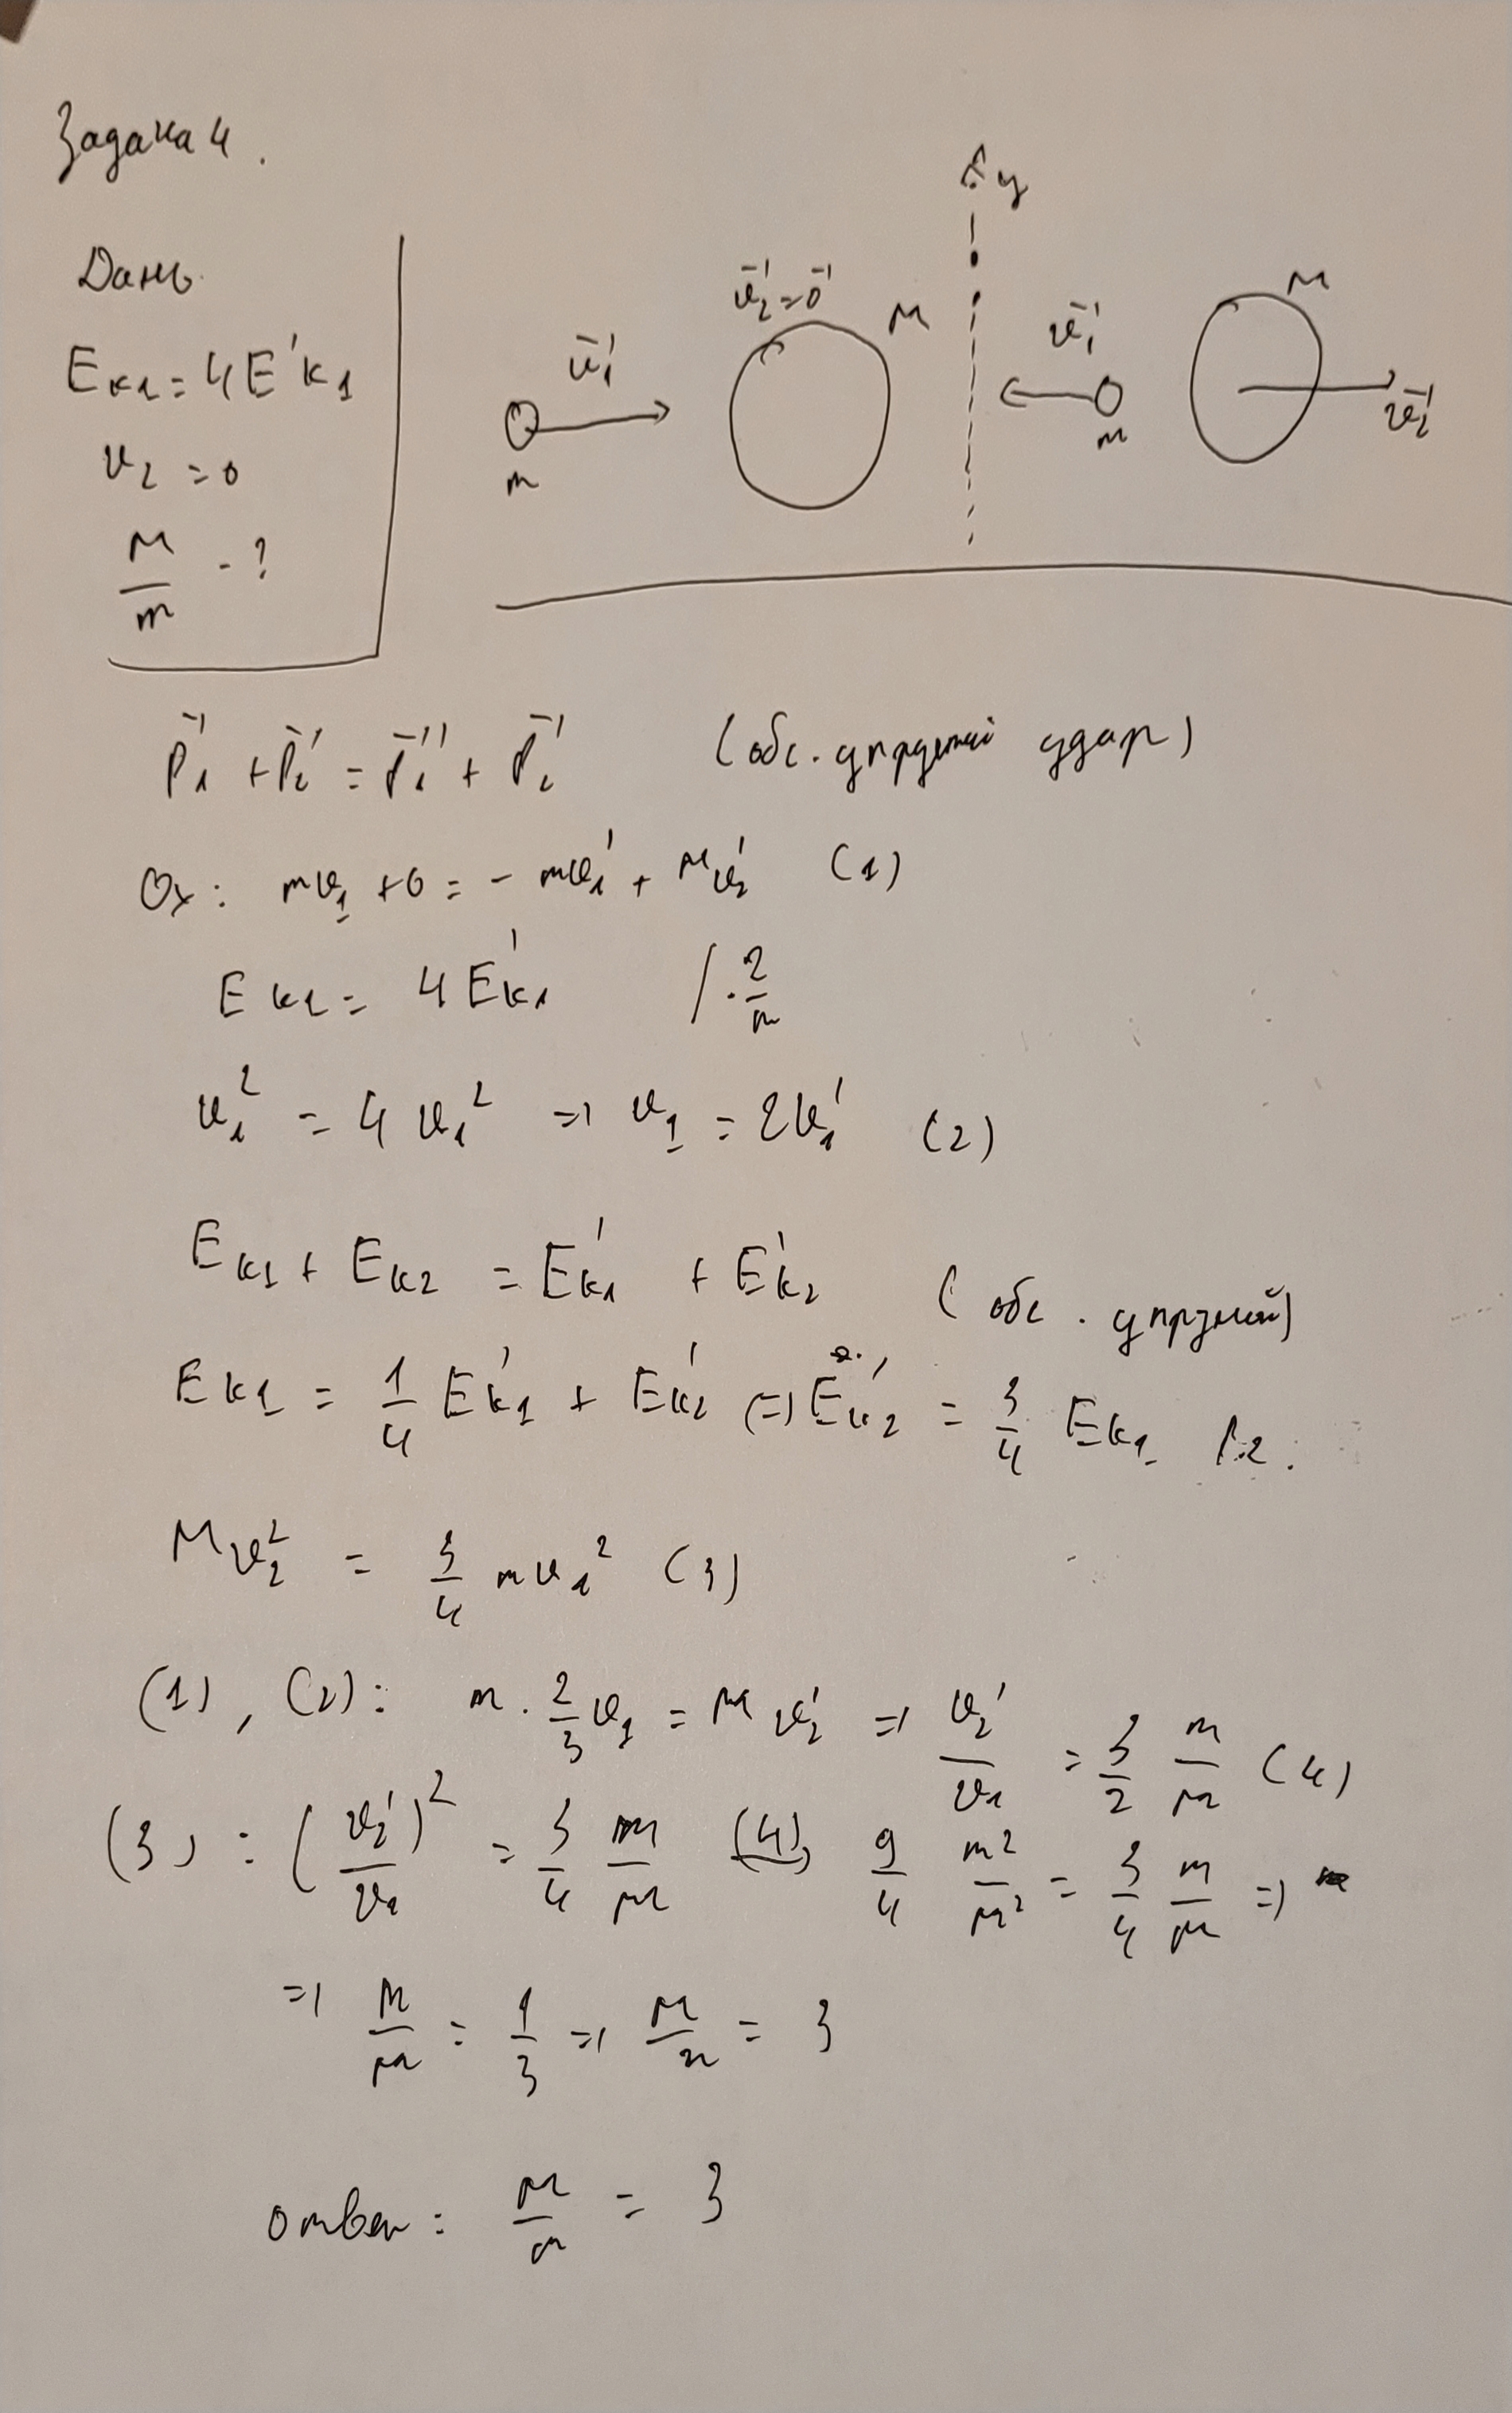 Задача 4.
Дань
Eк1 = 4E'к1
v2 = 0
M/m - ?
v⃗1
m
v⃗2 = 0⃗
M
y
v⃗1'
m
M
v⃗2'
p⃗1 + p⃗2 = p⃗1' + p⃗2' (абс. упругий удар)
Ox: mv1 + 0 = - mv1' + Mv2' (1)
Eк1 = 4 E'к1 / · 2/m
v1² = 4 v1² => v1 = 2v1' (2)
Eк1 + Eк2 = E'к1 + E'к2 (абс. упругий)
Eк1 = 1/4 E'к1 + E'к2 (=) E'к2 = 3/4 Eк1 /·2.
Mv2² = 3/4 mv1² (3)
(1), (2): m · 2/3 v1 = M v2' => v2'/v1 = 3/2 m/M (4)
(3): (v2'/v1)² = 3/4 m/M (4) 9/4 m²/M² = 3/4 m/M =>
=> m/M = 1/3 => M/m = 3
ответ: M/m = 3